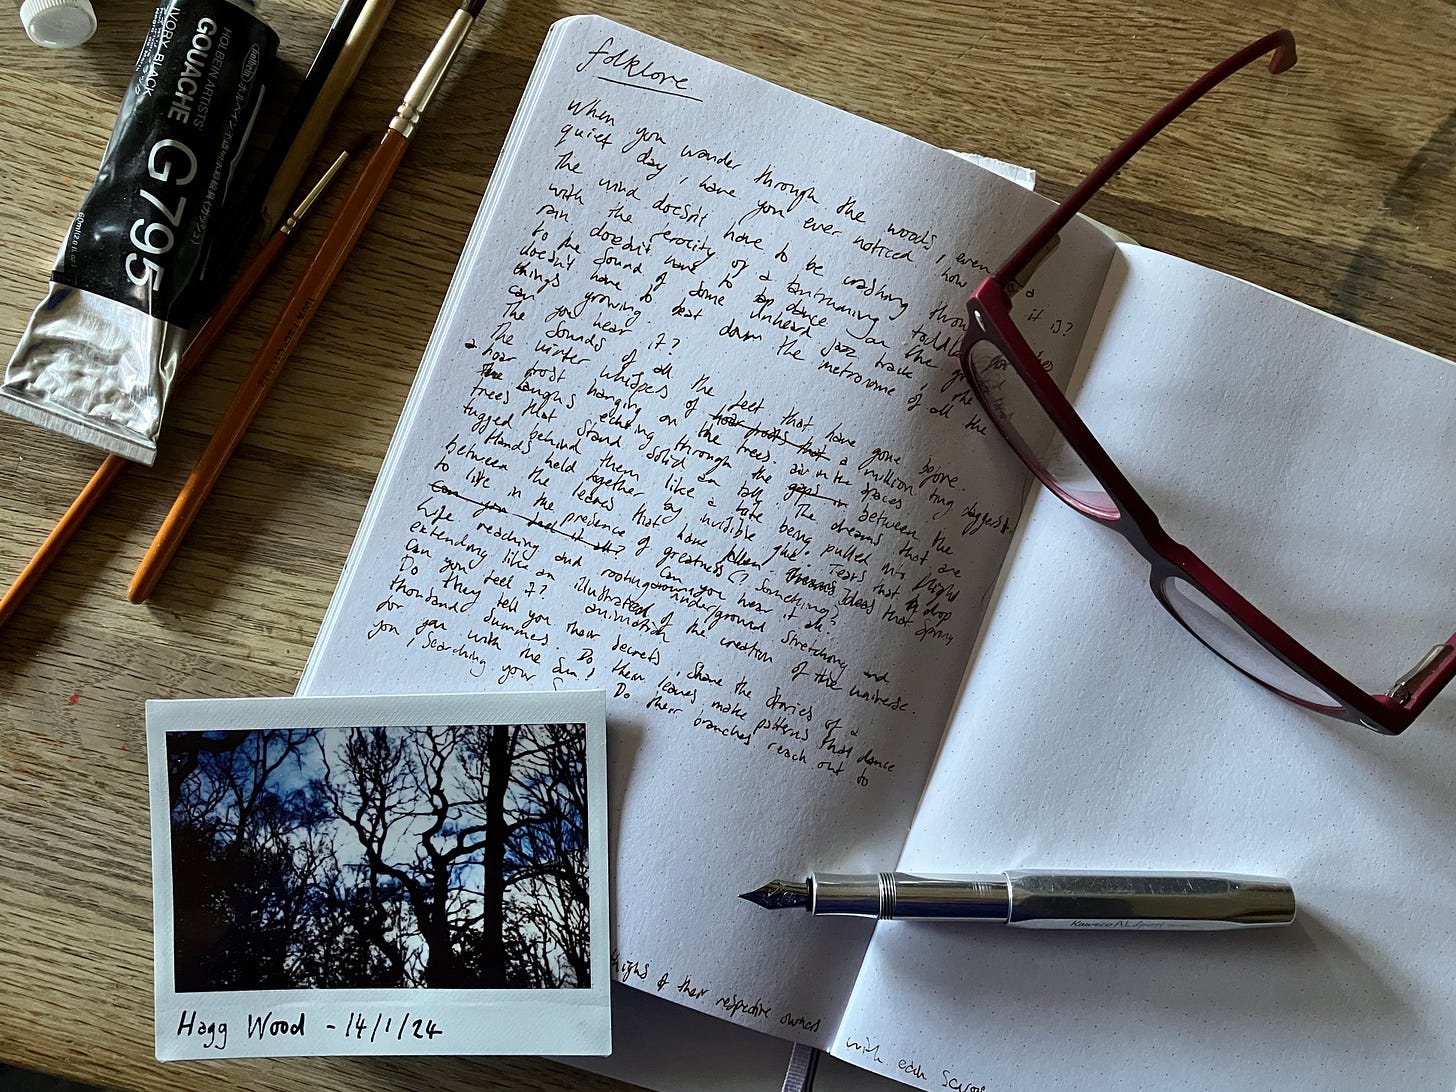 HOLBEIN ARTISTS'
GOUACHE G795
IVORY BLACK
folklore
When you wander through the woods, even a
quiet day, have you ever noticed how it is?
The wind doesn't have to be crashing through
with the ferocity of a tantruming toddler
rain doesn't have to tap dance on the ground
to the sound of some unheard jazz track, the
doesn't have to beat down the metronome of all the
things growing.
can you hear it?
The sounds of all the feet that have gone before.
The winter whispers of hoar frosts that a million tiny daggers
hoar frost hanging on the trees.
The laughs echoing through the gaps in air in the spaces between the
trees that stand solid an tall. The dreams that are
tugged behind them like a kite being pulled into flight
Hands held together by invisible glue. Tears that drop
between the leaves that have fallen. Ideas that spring
to life in the presence of greatness(?) Something?
Can you feel it all? Can you hear it all.
Life reaching and rooting around underground stretching and
extending like an illustrated animation of the creation of the universe.
Can you feel it?
Do they tell you their secrets, share the stories of a
thousand summers. Do their leaves make patterns that dance
for you with the sun? Do their branches reach out to
you, searching your
of their respective owners
with each
Kaweco AL Sport
Hagg Wood - 14/1/24